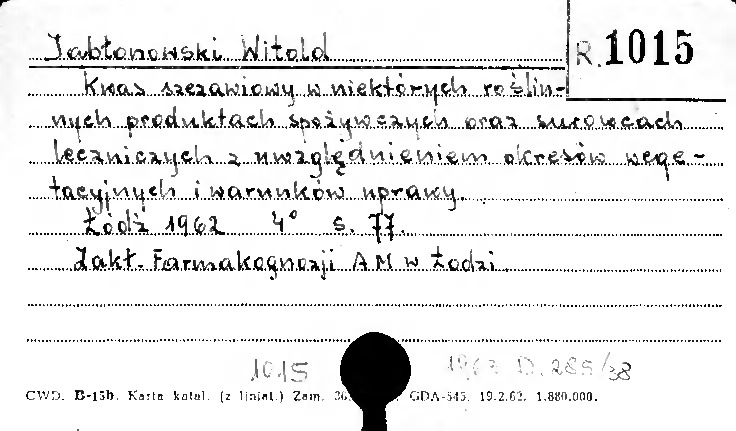 Jabłonowski Witold
R. 1015
Kwas szczawiowy w niektórych roślin-
nych produktach spożywczych oraz surowcach
leczniczych z uwzględnieniem okresów wege-
tacyjnych i warunków uprawy.
Łódź 1962 4° s. 77.
Zakł. Farmakognozji AM w Łodzi
1015 1963 D. 285/38
CWD. B-15b. Karta katal. (z liniat.) Zam. GDA-545. 19.2.62. 1.880.000.